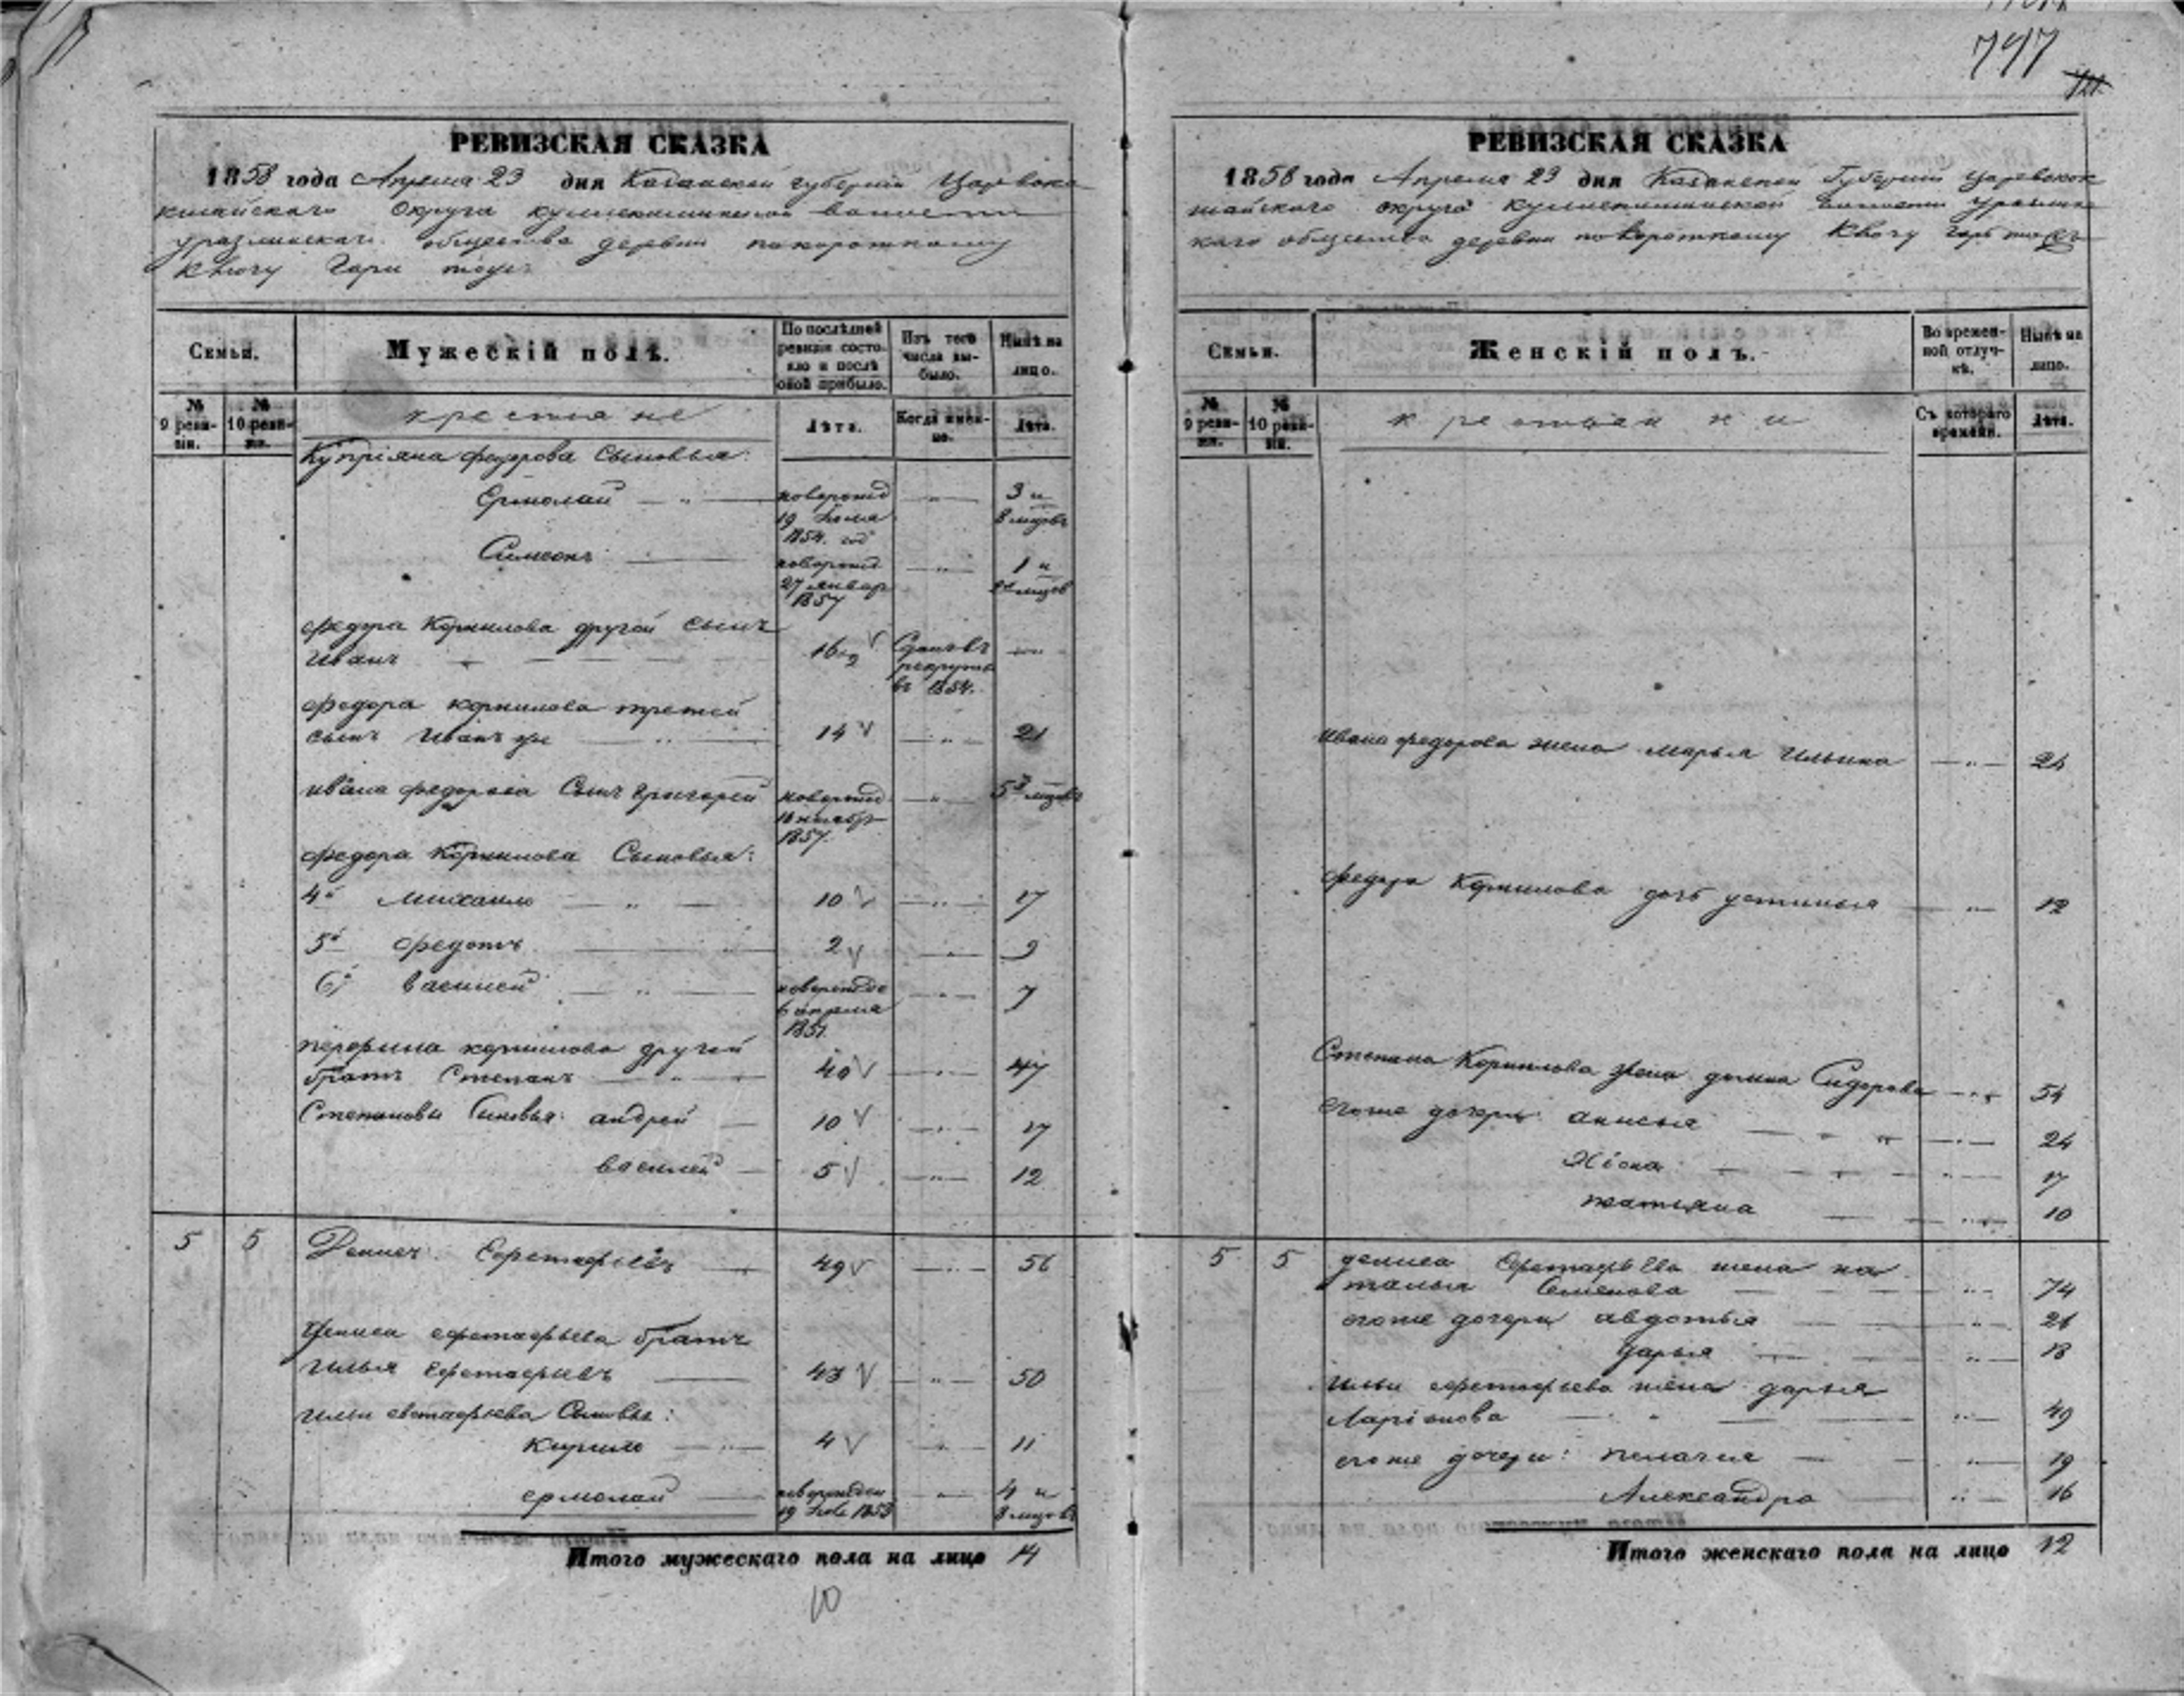 747
РЕВИЗСКАЯ СКАЗКА
1858 года Апреля 23 дня Казанской губернии Царевоко
кшайскаго Округа волости
общества деревни
Ключу
Семьи.
Мужескій полъ.
По послѣдней ревизіи состояло и послѣ оной прибыло.
Изъ того числа выбыло.
Нынѣ на лицо.
№ 9 ревизіи.
№ 10 ревизіи.
крестьяне
Лѣта.
Когда именно.
Лѣта.
Купріяна федорова Сыновья:
Ермолай новорожд 19 1854. год 3 и 8 мцовъ
Симеонъ новорожд 27 январ 1857 1 и мцов
федора Корнилова другой сынъ
Иванъ 16 Сданъ въ рекруты въ 1854.
федора корнилова третей
сынъ Иванъ же 14 21
ивана федорова Сынъ григорей новорожд 1857. 5 мцовъ
федора Корнилова Сыновья:
4й михайло 10 17
5й федотъ 2 9
6й василей новорожде 6 апреля 1851 7
корнилова другой
братъ Степанъ 40 47
Степановы Сыновья: андрей 10 17
василей 5 12
5 5 Денисъ Ефстафьевъ 49 56
Дениса ефстафьева братъ
илья Ефстафьевъ 43 50
ильи евстафьева Сыновья:
Кирило 4 11
ермолай новорожден 19 1853 4 и 8 мцовъ
Итого мужескаго пола на лицо 14
10
РЕВИЗСКАЯ СКАЗКА
1858 года Апреля 23 дня Казанской Губерніи Царевокок
шайскаго округа волости
каго общества деревни Ключу
Семьи.
Женскій полъ.
Во временной отлучкѣ.
Нынѣ на лицо.
№ 9 ревизіи.
№ 10 ревизіи.
крестьянки
Съ котораго времени.
Лѣта.
ивана федорова жена марья Ильина
федора Корнилова дочь устинья 12
Степана Корнилова жена домна Сидорова 54
егоже дочери: анисья 24
17
татьяна 10
5 5 дениса Ефстафьева жена на
талья Семенова 74
егоже дочери авдотья
Дарья 18
ильи ефстафьева жена дарья
Ларіонова 49
егоже дочери: пелагея 19
Александра 16
Итого женскаго пола на лицо 12